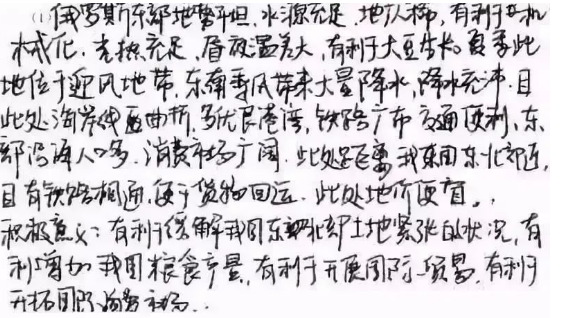 (1)俄罗斯东部地势平坦,水源充足,地广人稀,有利于机
械化,光热充足,昼夜温差大,有利于大豆生长。夏季此
地位于迎风地带,东南季风带来大量降水,降水充沛.且
此处海岸线曲折,多优良港湾,铁路广布交通便利,东
部沿海人口多,消费市场广阔.此处距离我国东北部近,
且有铁路相通,便于货物回运.此处地价便宜。
积极意义:有利于缓解我国东北部土地紧张的状况,有
利增加我国粮食产量,有利于开展国际贸易,有利于
开拓国际消费市场..